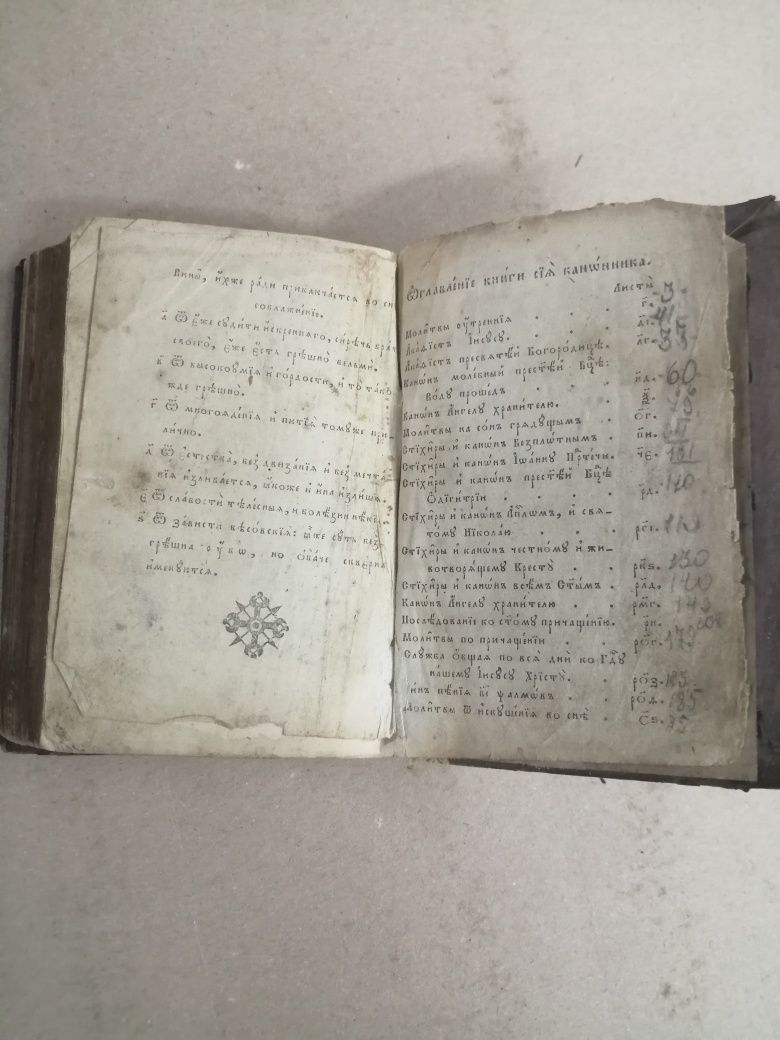 Вины̀, и҆́хже ра́ди приключа́етсѧ во снѣ
соблажне́нїе.
а҃ Ѿ є҆́же сꙋди́ти и҆́скреннѧго, си́рѣчь бра́та
своего̀, є҆́же є҆́сть грѣшно̀ вельмѝ.
в҃ Ѿ высокоꙋ́мїѧ и҆ го́рдости, и҆ то̀ та́ко
жде грѣ́шно.
г҃ Ѿ многоѧде́нїѧ и҆ питїѧ̀ томꙋ́же при
ли́чно.
д҃ Ѿ є҆стества̀, без̾ движа́нїѧ и҆ без̾ мечта́
нїѧ и҆злива́етсѧ, ꙗ҆́коже и҆ и҆́на и҆зли́шнѧѧ.
є҃ Ѿ сла́бости тѣле́сныѧ, и҆ болѣ́зни нѣ́кїѧ.
ѕ҃ Ѿ за́висти бѣсо́вскїѧ: ꙗ҆̀же сꙋ́ть без̾
грѣ́шна ᲂу҆́бѡ, но ѻ҆ба́че скве́рна
и҆менꙋ́ютсѧ.
Ѡ҆главле́нїе кни́ги сїѧ̀ канѡ́нника.
Листы̀
Моли҃твы ᲂу҆́треннїѧ . . . г҃. 3.
А҆ка́ѳїстъ І҆исꙋ́сꙋ. . . . 
А҆ка́ѳїстъ пресвѧтѣ́й Богоро́дицѣ. лг҃.
Канѡ́нъ моле́бный прест҃ѣ́й Бцⷣѣ:
Во́дꙋ проше́дъ . . . н҃д. 60
Канѡ́нъ А҆́нгелꙋ храни́телю. . ѯ҃.
Моли҃твы на со́нъ грѧдꙋ́щымъ . ѻ҃г.
Стїхи̑ры и҆ канѡ́нъ Безпло́тнымъ . п҃и.
Стїхи̑ры и҆ канѡ́нъ І҆ѡа́ннꙋ Прⷣте́чи. ч҃є. 101
Стїхи̑ры и҆ канѡ́нъ прест҃ѣ́й Бцⷣѣ
Ѻ҆диги́трїи . . . . р҃д. 110
Стїхи̑ры и҆ канѡ́нъ А҆пⷭ҇лѡмъ, и҆ свѧ
то́мꙋ Нїко́лаю . . .
Стїхи̑ры и҆ канѡ́нъ честно́мꙋ и҆ жи
вотворѧ́щемꙋ Крестꙋ̀ . . рк҃ѕ. 130
Стїхи̑ры и҆ канѡ́нъ всѣ̑мъ Ст҃ы̑мъ . рл҃д. 140
Канѡ́нъ А҆́нгелꙋ храни́телю . . рм҃г.
Послѣ́дованїе ко ст҃о́мꙋ причаще́нїю. рн҃.
Моли҃твы по причаще́нїи . . ро҃г. 173
Слꙋ́жба ѻ҆́бщаѧ по всѧ̑ дни̑ ко Гдⷭ҇ꙋ
на́шемꙋ І҆исꙋ́сꙋ Хрїстꙋ̀. . ро҃з. 183.
Чи́нъ пѣ́нїѧ в҃і ѱалмѡ́въ . . 185
Моли҃твы ѿ и҆скꙋше́нїѧ во снѣ̀ . с҃ѕ.